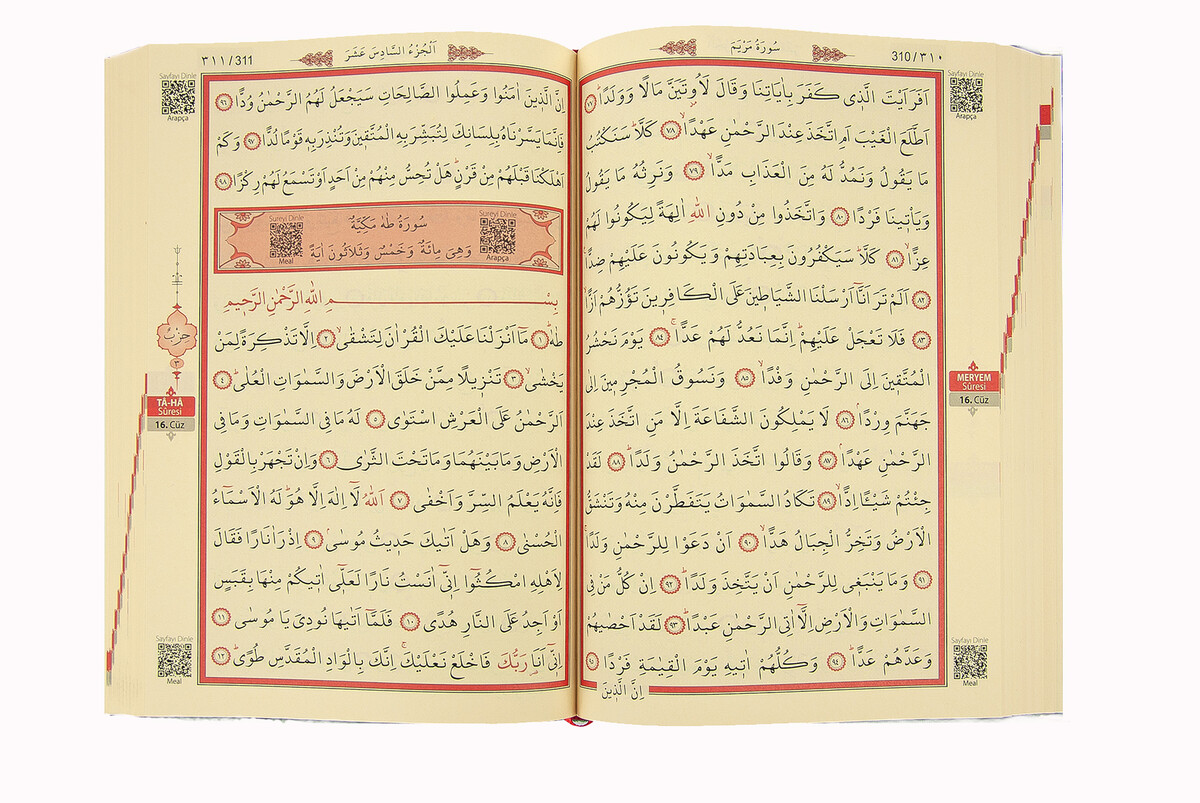 310/٣١٠
سُورَةُ مَرْيَمَ
Sayfayı Dinle
Arapça
اَفَرَاَيْتَ الَّذٖي كَفَرَ بِاٰيَاتِنَا وَقَالَ لَاُوتَيَنَّ مَالًا وَوَلَدًا ٧٧
اَطَّلَعَ الْغَيْبَ اَمِ اتَّخَذَ عِنْدَ الرَّحْمٰنِ عَهْدًا ٧٨ كَلَّا سَنَكْتُبُ
مَا يَقُولُ وَنَمُدُّ لَهُ مِنَ الْعَذَابِ مَدًّا ٧٩ وَنَرِثُهُ مَا يَقُولُ
وَيَأْتٖينَا فَرْدًا ٨٠ وَاتَّخَذُوا مِنْ دُونِ اللّٰهِ اٰلِهَةً لِيَكُونُوا لَهُمْ
عِزًّا ٨١ كَلَّا سَيَكْفُرُونَ بِعِبَادَتِهِمْ وَيَكُونُونَ عَلَيْهِمْ ضِدًّا
٨٢ اَلَمْ تَرَ اَنَّا اَرْسَلْنَا الشَّيَاطٖينَ عَلَى الْكَافِرٖينَ تَؤُزُّهُمْ اَزًّا
٨٣ فَلَا تَعْجَلْ عَلَيْهِمْ اِنَّمَا نَعُدُّ لَهُمْ عَدًّا ٨٤ يَوْمَ نَحْشُرُ
الْمُتَّقٖينَ اِلَى الرَّحْمٰنِ وَفْدًا ٨٥ وَنَسُوقُ الْمُجْرِمٖينَ اِلٰى
جَهَنَّمَ وِرْدًا ٨٦ لَا يَمْلِكُونَ الشَّفَاعَةَ اِلَّا مَنِ اتَّخَذَ عِنْدَ
الرَّحْمٰنِ عَهْدًا ٨٧ وَقَالُوا اتَّخَذَ الرَّحْمٰنُ وَلَدًا ٨٨ لَقَدْ
جِئْتُمْ شَيْـًٔا اِدًّا ٨٩ تَكَادُ السَّمٰوَاتُ يَتَفَطَّرْنَ مِنْهُ وَتَنْشَقُّ
الْاَرْضُ وَتَخِرُّ الْجِبَالُ هَدًّا ٩٠ اَنْ دَعَوْا لِلرَّحْمٰنِ وَلَدًا
٩١ وَمَا يَنْبَغٖي لِلرَّحْمٰنِ اَنْ يَتَّخِذَ وَلَدًا ٩٢ اِنْ كُلُّ مَنْ فِي
السَّمٰوَاتِ وَالْاَرْضِ اِلَّا اٰتِي الرَّحْمٰنِ عَبْدًا ٩٣ لَقَدْ اَحْصٰيهُمْ
وَعَدَّهُمْ عَدًّا ٩٤ وَكُلُّهُمْ اٰتٖيهِ يَوْمَ الْقِيٰمَةِ فَرْدًا ٩٥
اِنَّ الَّذٖينَ
MERYEM
Sûresi
16. Cüz
Sayfayı Dinle
Meal
اَلْجُزْءُ السَّادِسَ عَشَرَ
٣١١/311
Sayfayı Dinle
Arapça
اِنَّ الَّذٖينَ اٰمَنُوا وَعَمِلُوا الصَّالِحَاتِ سَيَجْعَلُ لَهُمُ الرَّحْمٰنُ وُدًّا ٩٦
فَاِنَّمَا يَسَّرْنَاهُ بِلِسَانِكَ لِتُبَشِّرَ بِهِ الْمُتَّقٖينَ وَتُنْذِرَ بِهٖ قَوْمًا لُدًّا ٩٧ وَكَمْ
اَهْلَكْنَا قَبْلَهُمْ مِنْ قَرْنٍ هَلْ تُحِسُّ مِنْهُمْ مِنْ اَحَدٍ اَوْ تَسْمَعُ لَهُمْ رِكْزًا ٩٨
Sureyi Dinle
Arapça
سُورَةُ طٰهٰ مَكِّيَّةٌ
وَهِيَ مِائَةٌ وَخَمْسٌ وَثَلَاثُونَ اٰيَةً
Sureyi Dinle
Meal
بِسْمِ اللّٰهِ الرَّحْمٰنِ الرَّحٖيمِ
طٰهٰ ١ مَا اَنْزَلْنَا عَلَيْكَ الْقُرْاٰنَ لِتَشْقٰى ٢ اِلَّا تَذْكِرَةً لِمَنْ
يَخْشٰى ٣ تَنْزٖيلًا مِمَّنْ خَلَقَ الْاَرْضَ وَالسَّمٰوَاتِ الْعُلٰى ٤
اَلرَّحْمٰنُ عَلَى الْعَرْشِ اسْتَوٰى ٥ لَهُ مَا فِي السَّمٰوَاتِ وَمَا فِي
الْاَرْضِ وَمَا بَيْنَهُمَا وَمَا تَحْتَ الثَّرٰى ٦ وَاِنْ تَجْهَرْ بِالْقَوْلِ
فَاِنَّهُ يَعْلَمُ السِّرَّ وَاَخْفٰى ٧ اَللّٰهُ لَا اِلٰهَ اِلَّا هُوَ لَهُ الْاَسْمَاءُ
الْحُسْنٰى ٨ وَهَلْ اَتٰيكَ حَدٖيثُ مُوسٰى ٩ اِذْ رَاٰ نَارًا فَقَالَ
لِاَهْلِهِ امْكُثُوا اِنّٖي اٰنَسْتُ نَارًا لَعَلّٖي اٰتٖيكُمْ مِنْهَا بِقَبَسٍ
اَوْ اَجِدُ عَلَى النَّارِ هُدًى ١٠ فَلَمَّا اَتٰيهَا نُودِيَ يَا مُوسٰى ١١
اِنّٖي اَنَا رَبُّكَ فَاخْلَعْ نَعْلَيْكَ اِنَّكَ بِالْوَادِ الْمُقَدَّسِ طُوًى ١٢
حِزْبٌ
٣
TÂ-HÂ
Sûresi
16. Cüz
Sayfayı Dinle
Meal